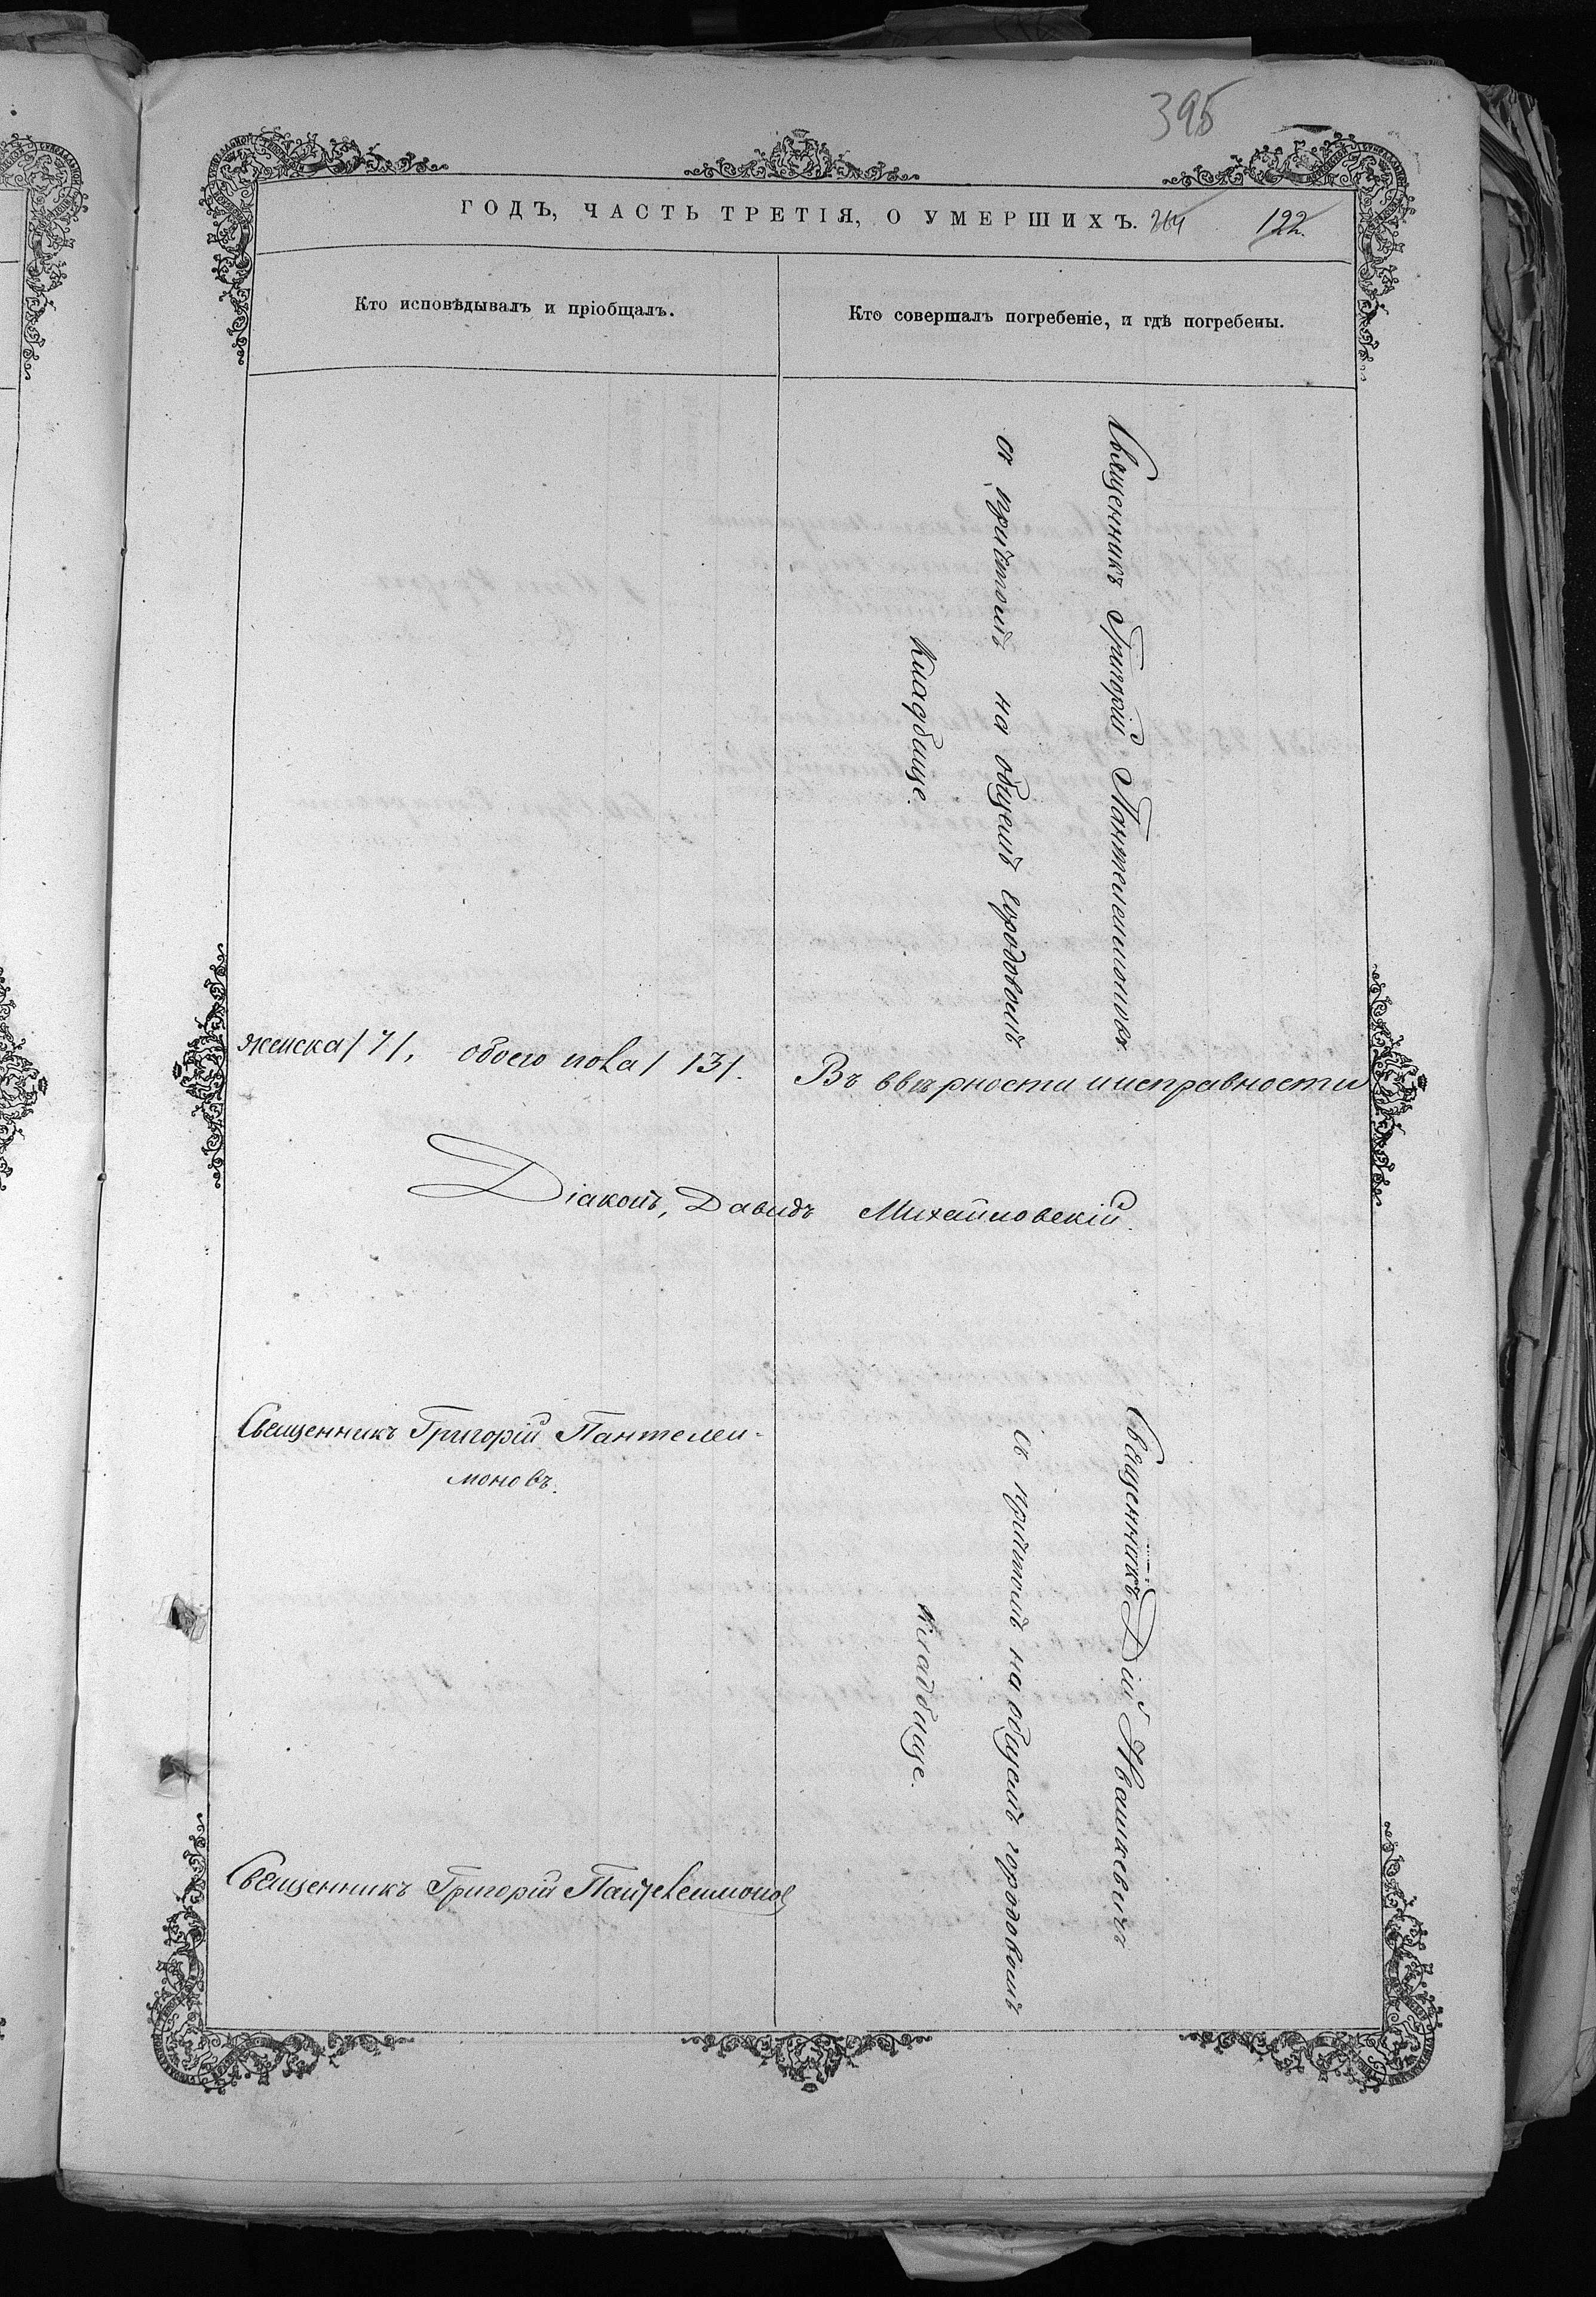 395
ГОДЪ, ЧАСТЬ ТРЕТІЯ, О УМЕРШИХЪ. 264 122.
Кто исповѣдывалъ и пріобщалъ.
Кто совершалъ погребеніе, и гдѣ погребены.
Священникъ Григорій Пантелеимоновъ
съ причтомъ на общемъ городовомъ
кладбище.
женска /7/, обоего пола /13/. Въ ввѣрности и исправности
Діаконъ, Давидъ Михайловскій.
Священникъ Григорій Пантелеи-
моновъ.
Священникъ Дій Ивашкевичъ
съ причтомъ на общемъ городовомъ
кладбище.
Священникъ Григорій Пантелеимонов